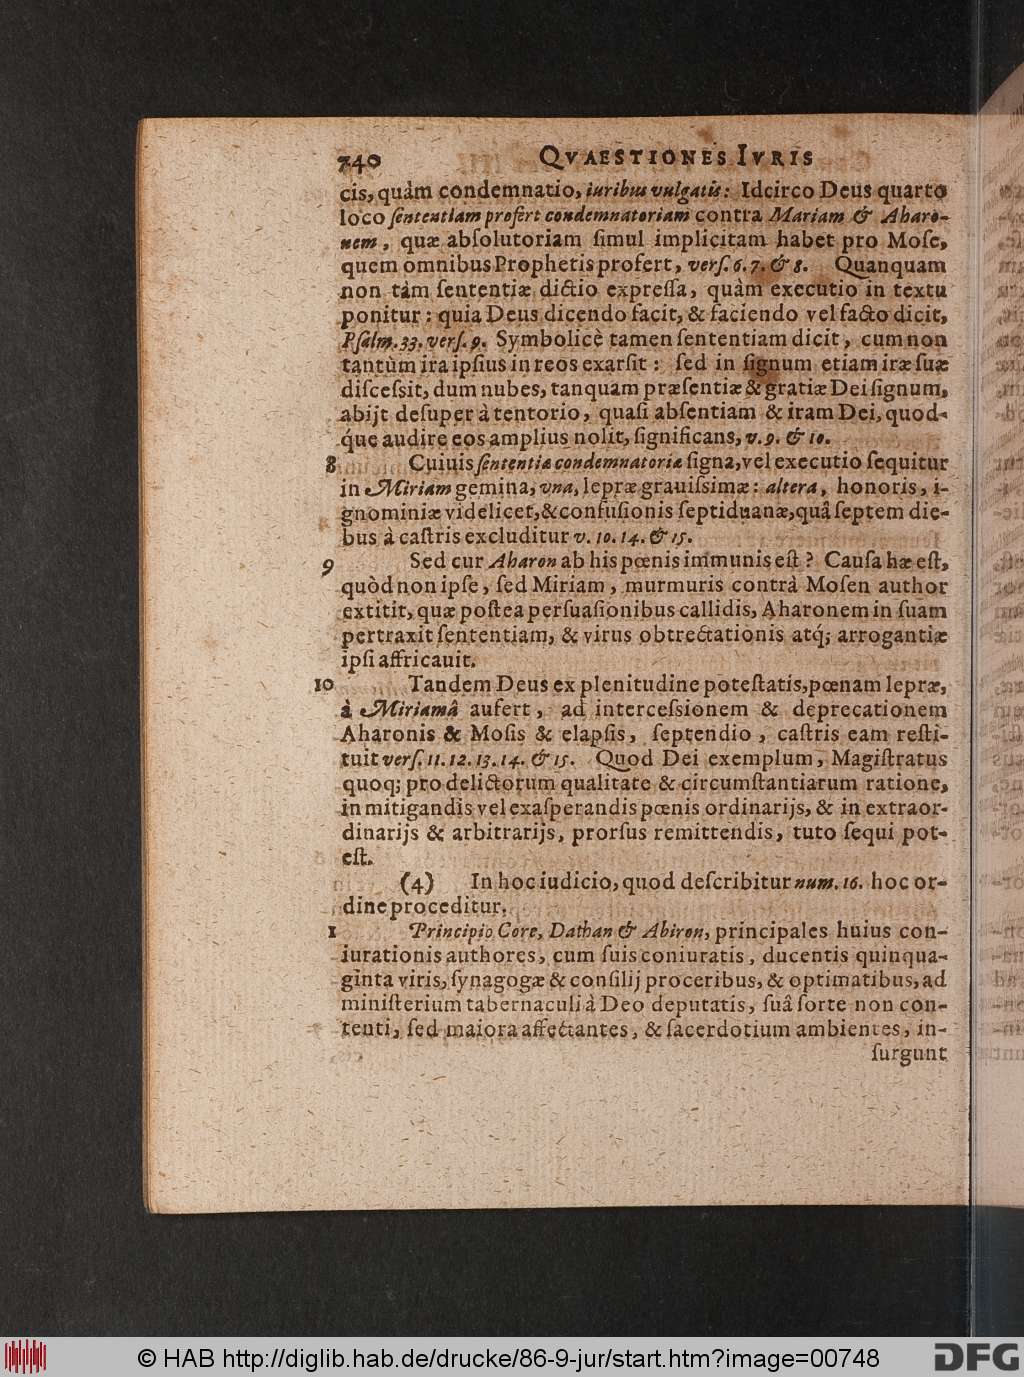 740 QVAESTIONES IVRIS
cis, quàm condemnatio, iuribus vulgatis: Idcirco Deus quarto
loco ſententiam profert condemnatoriam contra Mariam & Aharo-
nem, quæ abſolutoriam ſimul implicitam habet pro Moſe,
quem omnibus Prophetis profert, verſ. 6. 7. & 8. Quanquam
non tàm ſententiæ dictio expreſſa, quàm executio in textu
ponitur: quia Deus dicendo facit, & faciendo vel facto dicit,
Pſalm. 33. verſ. 9. Symbolicè tamen ſententiam dicit, cum non
tantùm ira ipſius in reos exarſit: ſed in ſignum etiam iræ ſuæ
diſceſsit, dum nubes, tanquam præſentiæ & gratiæ Dei ſignum,
abijt deſuper à tentorio, quaſi abſentiam & iram Dei, quod-
q́ue audire eos amplius nolit, ſignificans, v. 9. & 10.
8 Cuiuis ſententiæ condemnatoriæ ſigna, vel executio ſequitur
in Miriam gemina, vna, lepræ grauiſsimæ: altera, honoris, i-
gnominiæ videlicet, & confuſionis ſeptiduanæ, quâ ſeptem die-
bus à caſtris excluditur v. 10. 14. & 15.
9 Sed cur Aharon ab his pœnis immunis eſt? Cauſa hæ eſt,
quòd non ipſe, ſed Miriam, murmuris contrà Moſen author
extitit, quæ poſtea perſuaſionibus callidis, Aharonem in ſuam
pertraxit ſententiam, & virus obtrectationis atq́; arrogantiæ
ipſi affricauit.
10 Tandem Deus ex plenitudine poteſtatis, pœnam lepræ,
à Miriamâ aufert, ad interceſsionem & deprecationem
Aharonis & Moſis & elapſis, ſeptendio, caſtris eam reſti-
tuit verſ. 11. 12. 13. 14. & 15. Quod Dei exemplum, Magiſtratus
quoq; pro delictorum qualitate & circumſtantiarum ratione,
in mitigandis vel exaſperandis pœnis ordinarijs, & in extraor-
dinarijs & arbitrarijs, prorſus remittendis, tuto ſequi pot-
eſt.
(4) In hoc iudicio, quod deſcribitur num. 16. hoc or-
dine proceditur.
1 Principio Core, Dathan & Abiron, principales huius con-
iurationis authores, cum ſuis coniuratis, ducentis quinqua-
ginta viris, ſynagogæ & conſilij proceribus, & optimatibus, ad
miniſterium tabernaculi à Deo deputatis, ſuâ ſorte non con-
tenti, ſed maiora affectantes, & ſacerdotium ambientes, in-
ſurgunt
© HAB http://diglib.hab.de/drucke/86-9-jur/start.htm?image=00748
DFG